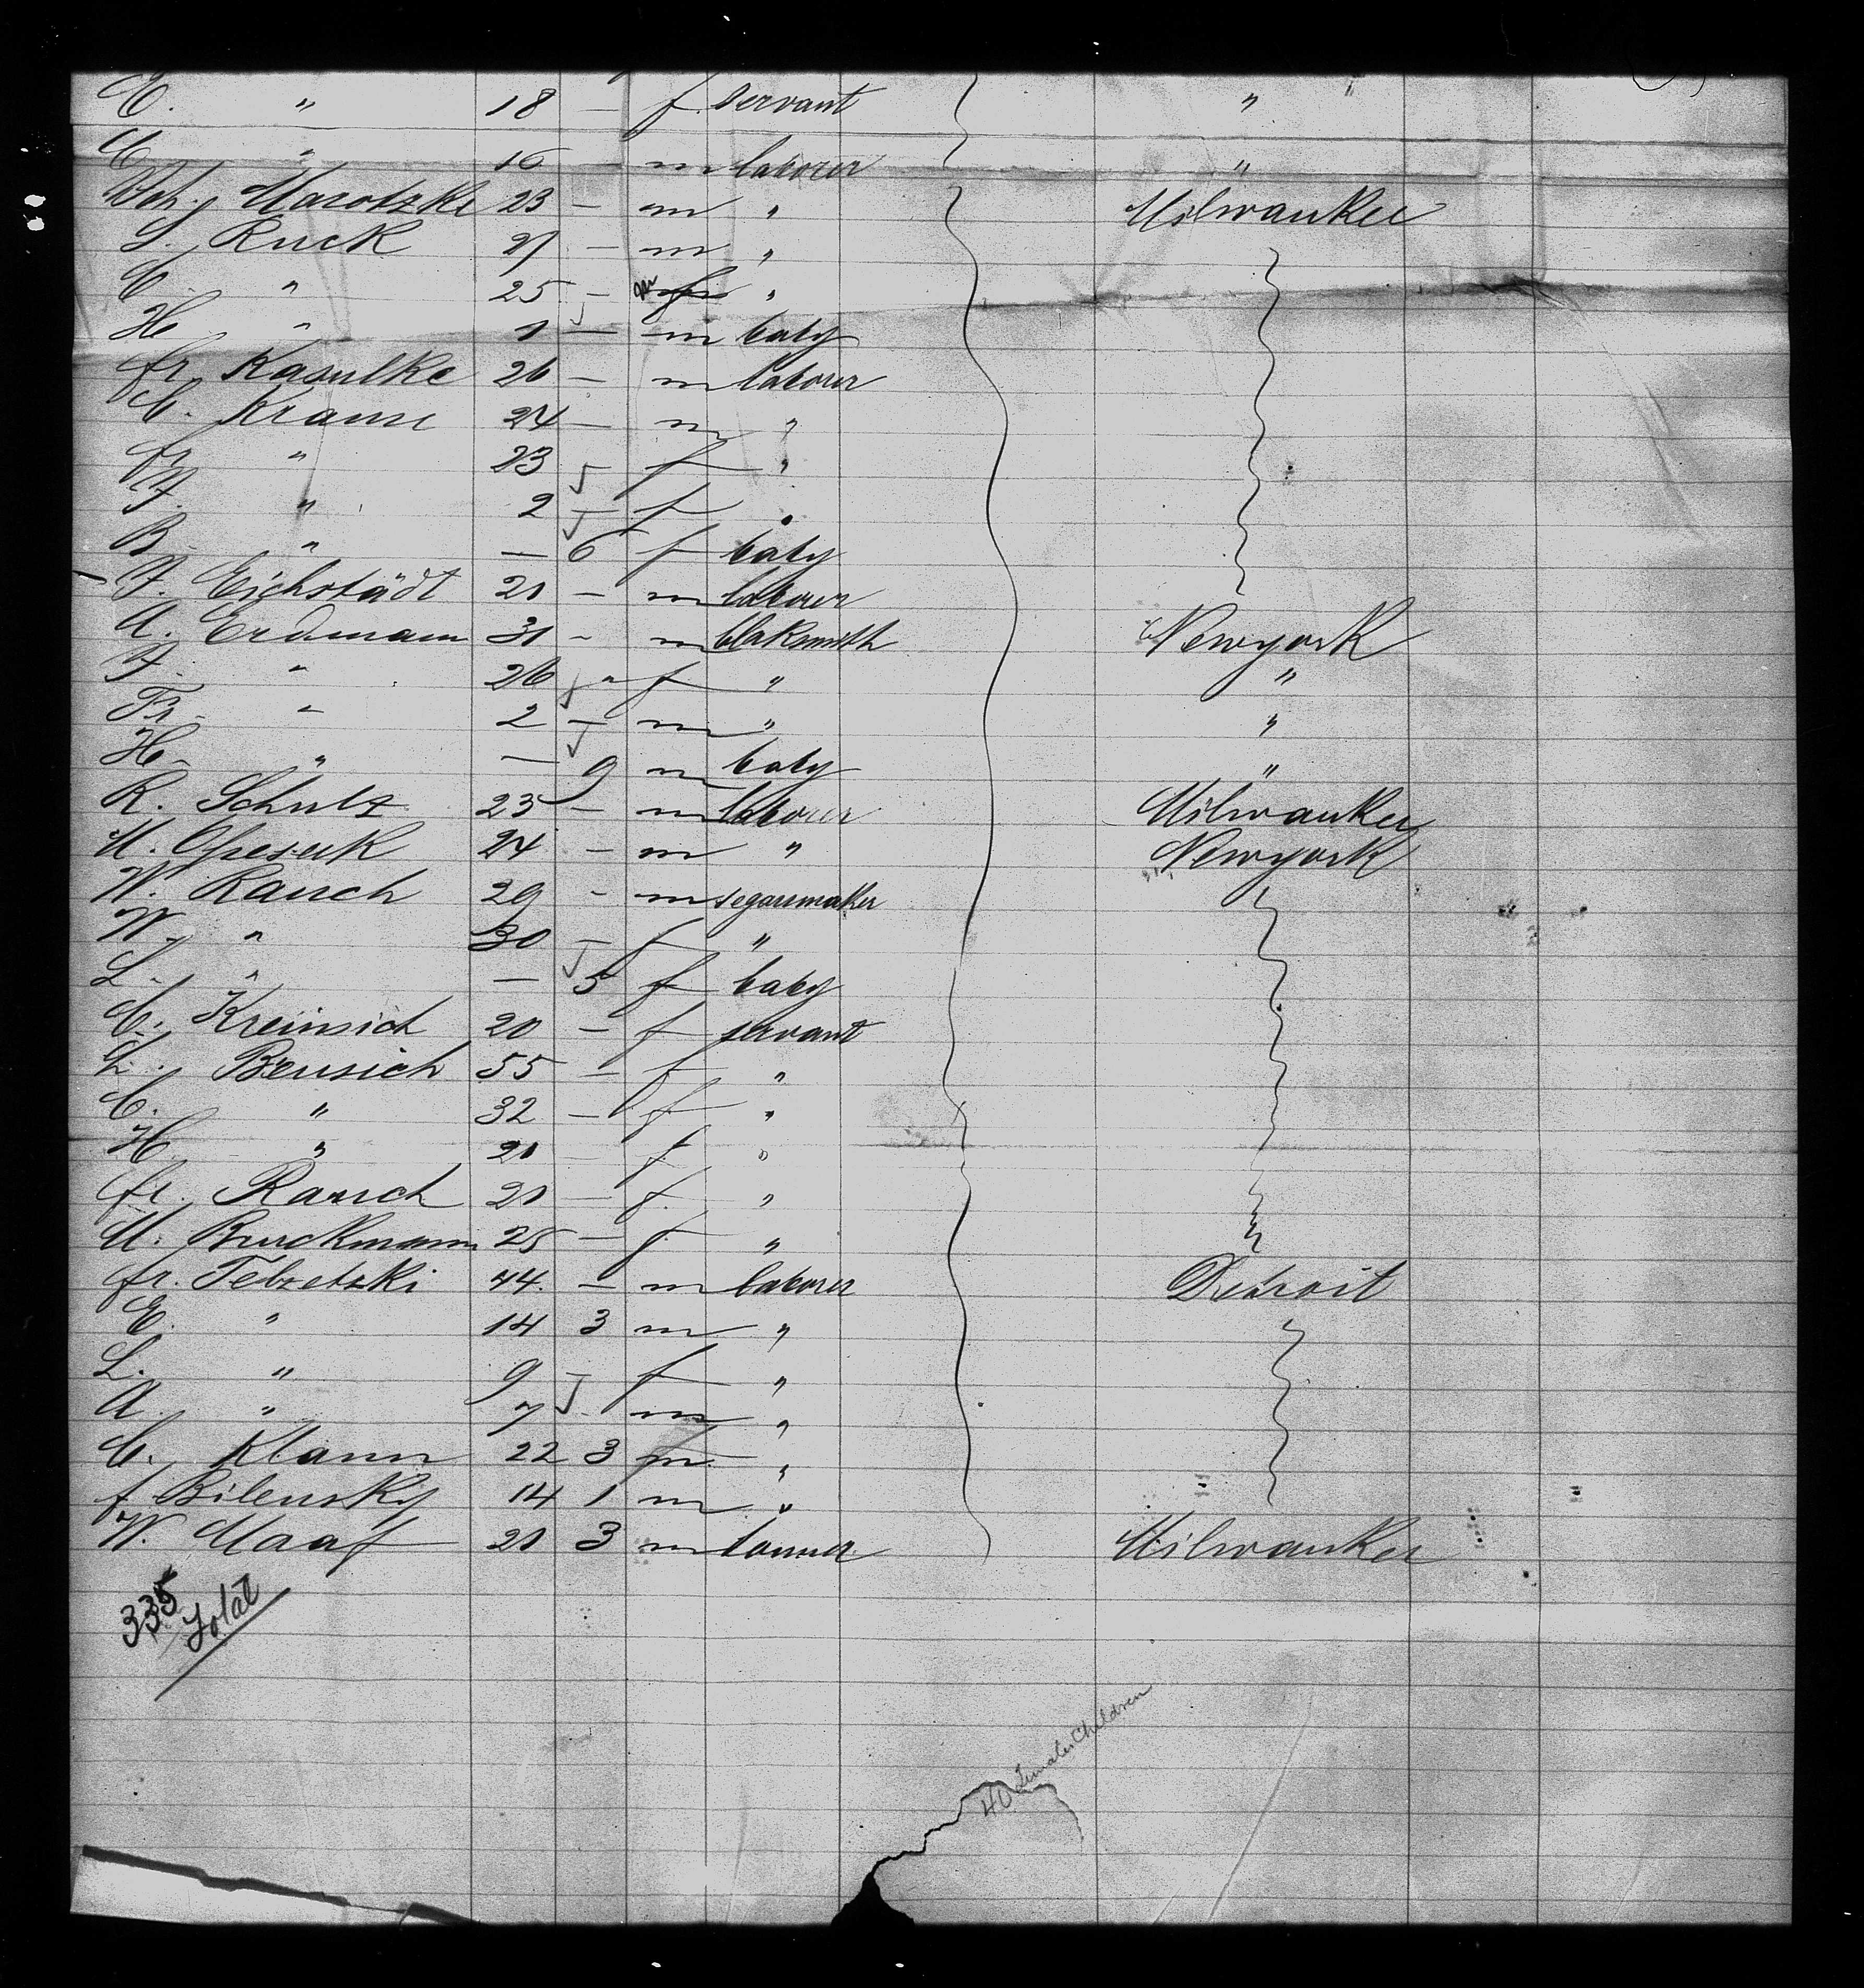 E. " 18 — f servant "
" 16 — m laborer "
Marotzke 23 — m " Milwaukee
Ruck 27 — m "
C. " 25 — m "
H. " 1 — m baby
fr. Kasulke 26 — m laborer
C. Krause 24 — m "
fr. " 23 f "
" 2 — f "
B. " — 6 f baby
F. Eichstädt 21 — m laborer
A. Erdmann 31 — m blaksmith Newyork
F. " 26 " f " "
Fr. " 2 — m " "
H. " — 9 m baby "
R. Schulz 23 — m laborer Milwaukee
M. 24 — m " Newyork
W. Rauch 29 — m segaremaker
W. " 30 — f "
L. " — 5 f baby
C. Kreinsich 20 — f servant
L. Bensich 55 — f "
C. " 32 — f "
H. " 21 f "
fr. Rauch 21 — f. "
M. Bruckmann 25 — f. "
fr. Tebzetzki 44. — m laborer Detroit
E. " 14 3 m "
L. " 9 — f "
A. " 7 m "
C. Klann 22 3 m "
f. Bilensky 14 1 m "
W. Maaf 21 3 m Milwaukee
335 Total
40 Females Children